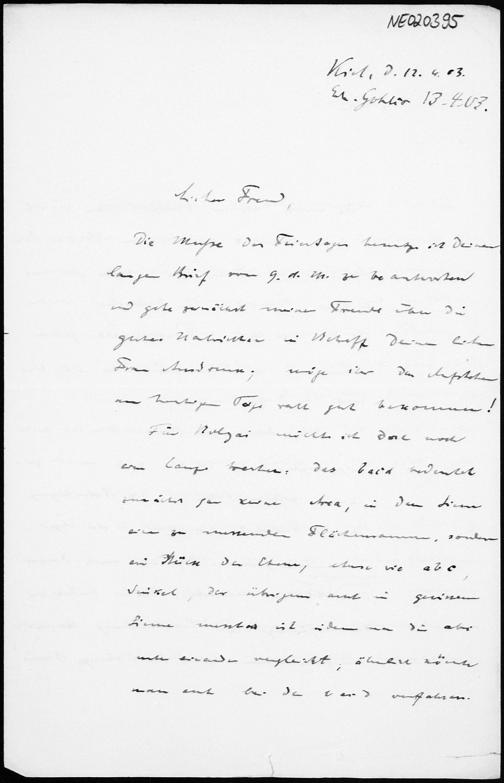 NE020395
Kiel, d. 12.4.03.
Eh. Gohlis 13.4.03.
Lieber Freund,
Die Muße des Feiertages benutze ich Deinen
langen Brief vom 9. d. M. zu beantworten
und gebe zunächst meiner Freude über die
guten Nachrichten in Betreff Deiner lieben
Frau Ausdruck; möge ihr das Aufstehen
am heutigen Tage recht gut bekommen!
Für Bolyai möchte ich doch noch
eine Lanze brechen. Das bedeutet
zunächst gar keine Area, in dem Sinne
einer zu messenden Flächensumme, sondern
ein Stück der Ebene, ebenso wie abc,
Winkel, der übrigens auch in gewissem
Sinne messbar ist indem man die abc
unter einander vergleicht, ähnlich könnte
man auch bei den verfahren.